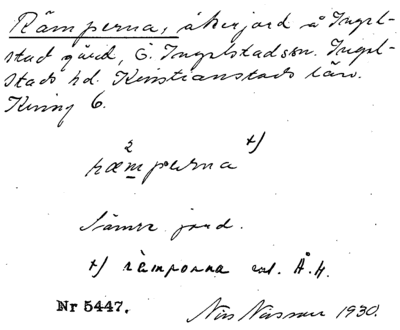 Rämperna, åkerjord å Ingel-
stad gård, Ö. Ingelstads sn. Ingel-
stads hd. Kristianstads län.
Kung 6.
2 +)
ræmperna
Sämre jord.
+) rämporna rat. Å.H.
Nr 5447. Nils Nilsson 1930.